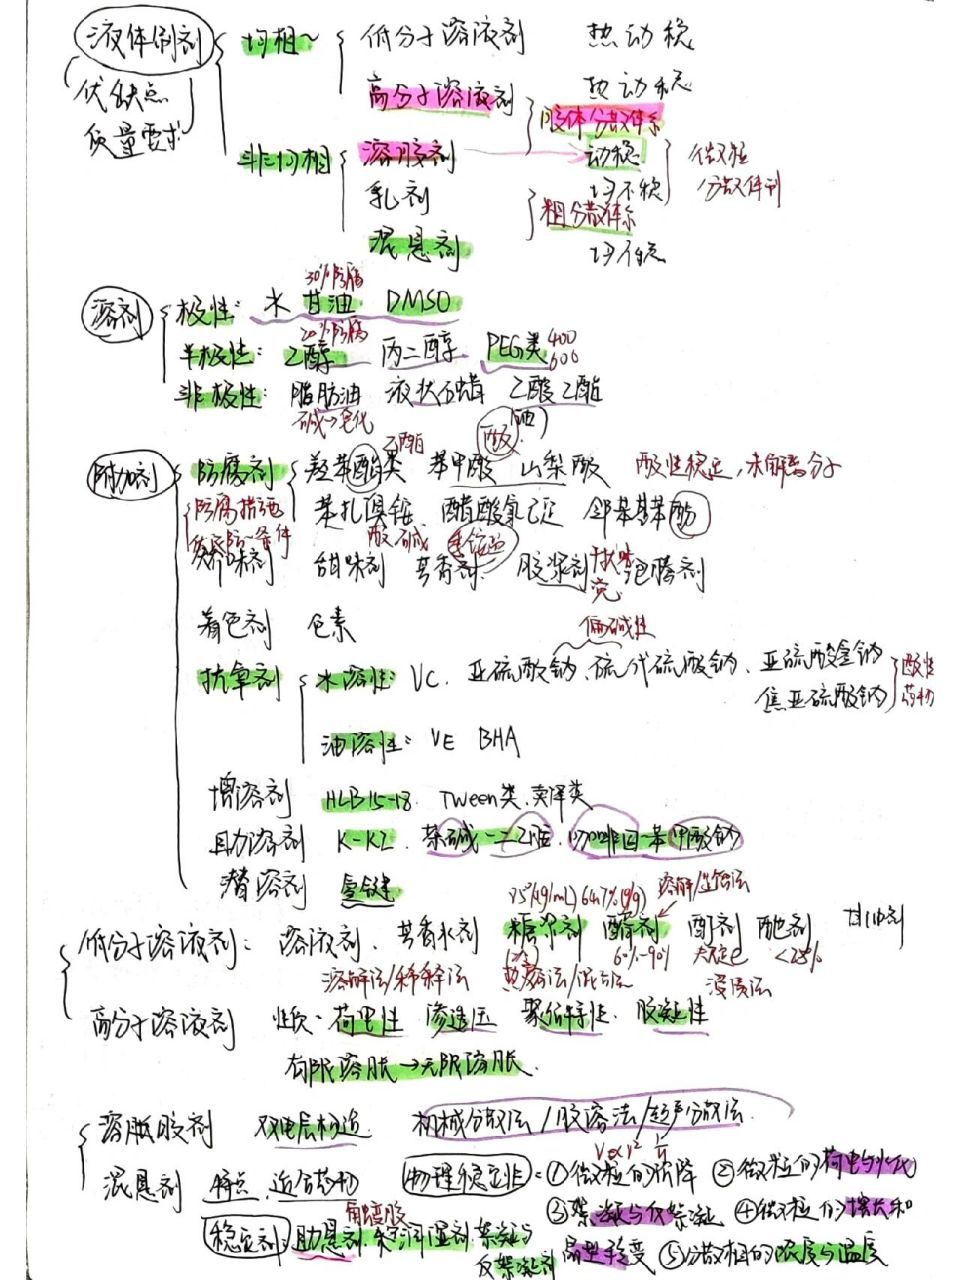 液体制剂 均相~ 低分子溶液剂 热动稳
优缺点 高分子溶液剂 热动稳
质量要求 胶体分散体系
非均相 溶胶剂 动稳 微粒
乳剂 均不稳 分散体系
粗分散体系
混悬剂 均不稳
30%防腐
溶剂 极性: 水 甘油 DMSO
20%防腐
半极性: 乙醇 丙二醇 PEG类 400 600
非极性: 脂肪油 液状石蜡 乙酸乙酯
碱→皂化
附加剂 防腐剂 羟苯酯类 苯甲酸 山梨酸 酸性稳定,未解离分子
防腐措施 苯扎溴铵 醋酸氯己定 邻苯基苯酚
酸碱 季铵盐
矫味剂 甜味剂 芳香剂 胶浆剂 泡腾剂
干扰味觉
着色剂 色素
偏碱性
抗氧剂 水溶性: VC. 亚硫酸钠、硫代硫酸钠、亚硫酸氢钠 酸性
焦亚硫酸钠 药物
油溶性: VE BHA
增溶剂 HLB15-18. Tween类、卖泽类
助溶剂 K-KI. 茶碱-二乙胺. 咖啡因-苯甲酸钠
潜溶剂 氢键
85%(g/mL) 64.7%(g/g) 溶解/
低分子溶液剂: 溶液剂、芳香水剂 糖浆剂 醑剂 酊剂 酏剂 甘油剂
60%-90% <25%
溶解法/稀释法 热溶法/混合法 浸渍法
高分子溶液剂 性质. 荷电性 渗透压 聚结特性. 胶凝性
有限溶胀→无限溶胀.
溶胶剂 双电层构造 机械分散法/胶溶法/超声分散法
V∝r² 1/η
混悬剂 特点. 近 药物 物理稳定性: ①微粒的沉降 ②微粒的荷电与水化
③絮凝与反絮凝 ④微粒的增长和
稳定剂: 助悬剂. 润湿剂. 絮凝与 晶型转变 ⑤分散相的浓度与温度
反絮凝剂